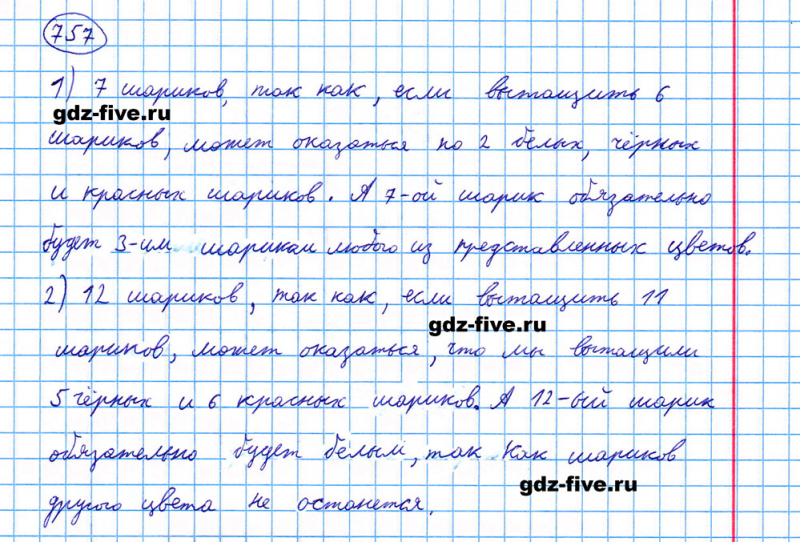 757
1) 7 шариков, так как, если вытащить 6
gdz-five.ru
шариков, может оказаться по 2 белых, чёрных
и красных шариков. А 7-ой шарик обязательно
будет 3-им шариком любого из представленных цветов.
2) 12 шариков, так как, если вытащить 11
gdz-five.ru
шариков, может оказаться, что мы вытащили
5 чёрных и 6 красных шариков. А 12-ый шарик
обязательно будет белым, так как шариков
gdz-five.ru
другого цвета не останется.